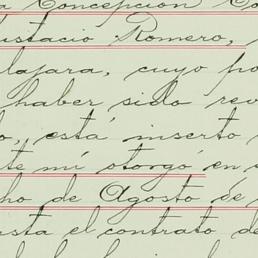 a Concepcion Co
ustacio Romero,
lajara, cuyo po
haber sido rev
o, está inserto
te mí otorgó en
ho de Agosto de
sta el contrato de